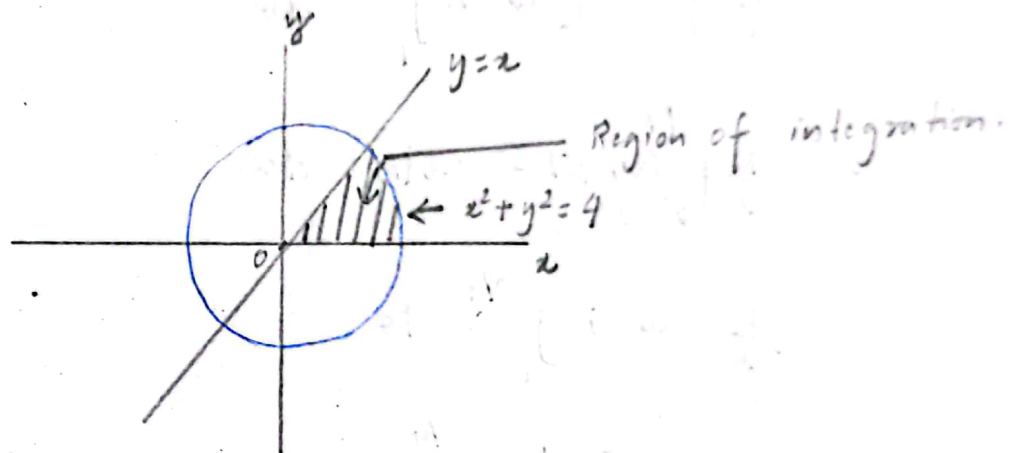 y
y=x
Region of integration.
x²+y²=4
0
x